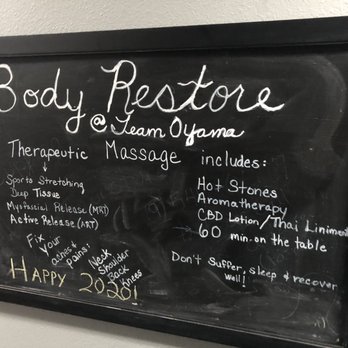 Body Restore
@ Team Oyama
Therapeutic Massage includes:
Sports Stretching
Deep Tissue
Myofascial Release (MRT)
Active Release (ART)
Hot Stones
Aromatherapy
CBD Lotion/Thai Liniment
60 min. on the table
Fix
Your
aches &
pains:
Neck
Shoulder
Back
Knees
Don't suffer, sleep & recover
well!
Happy 2020!